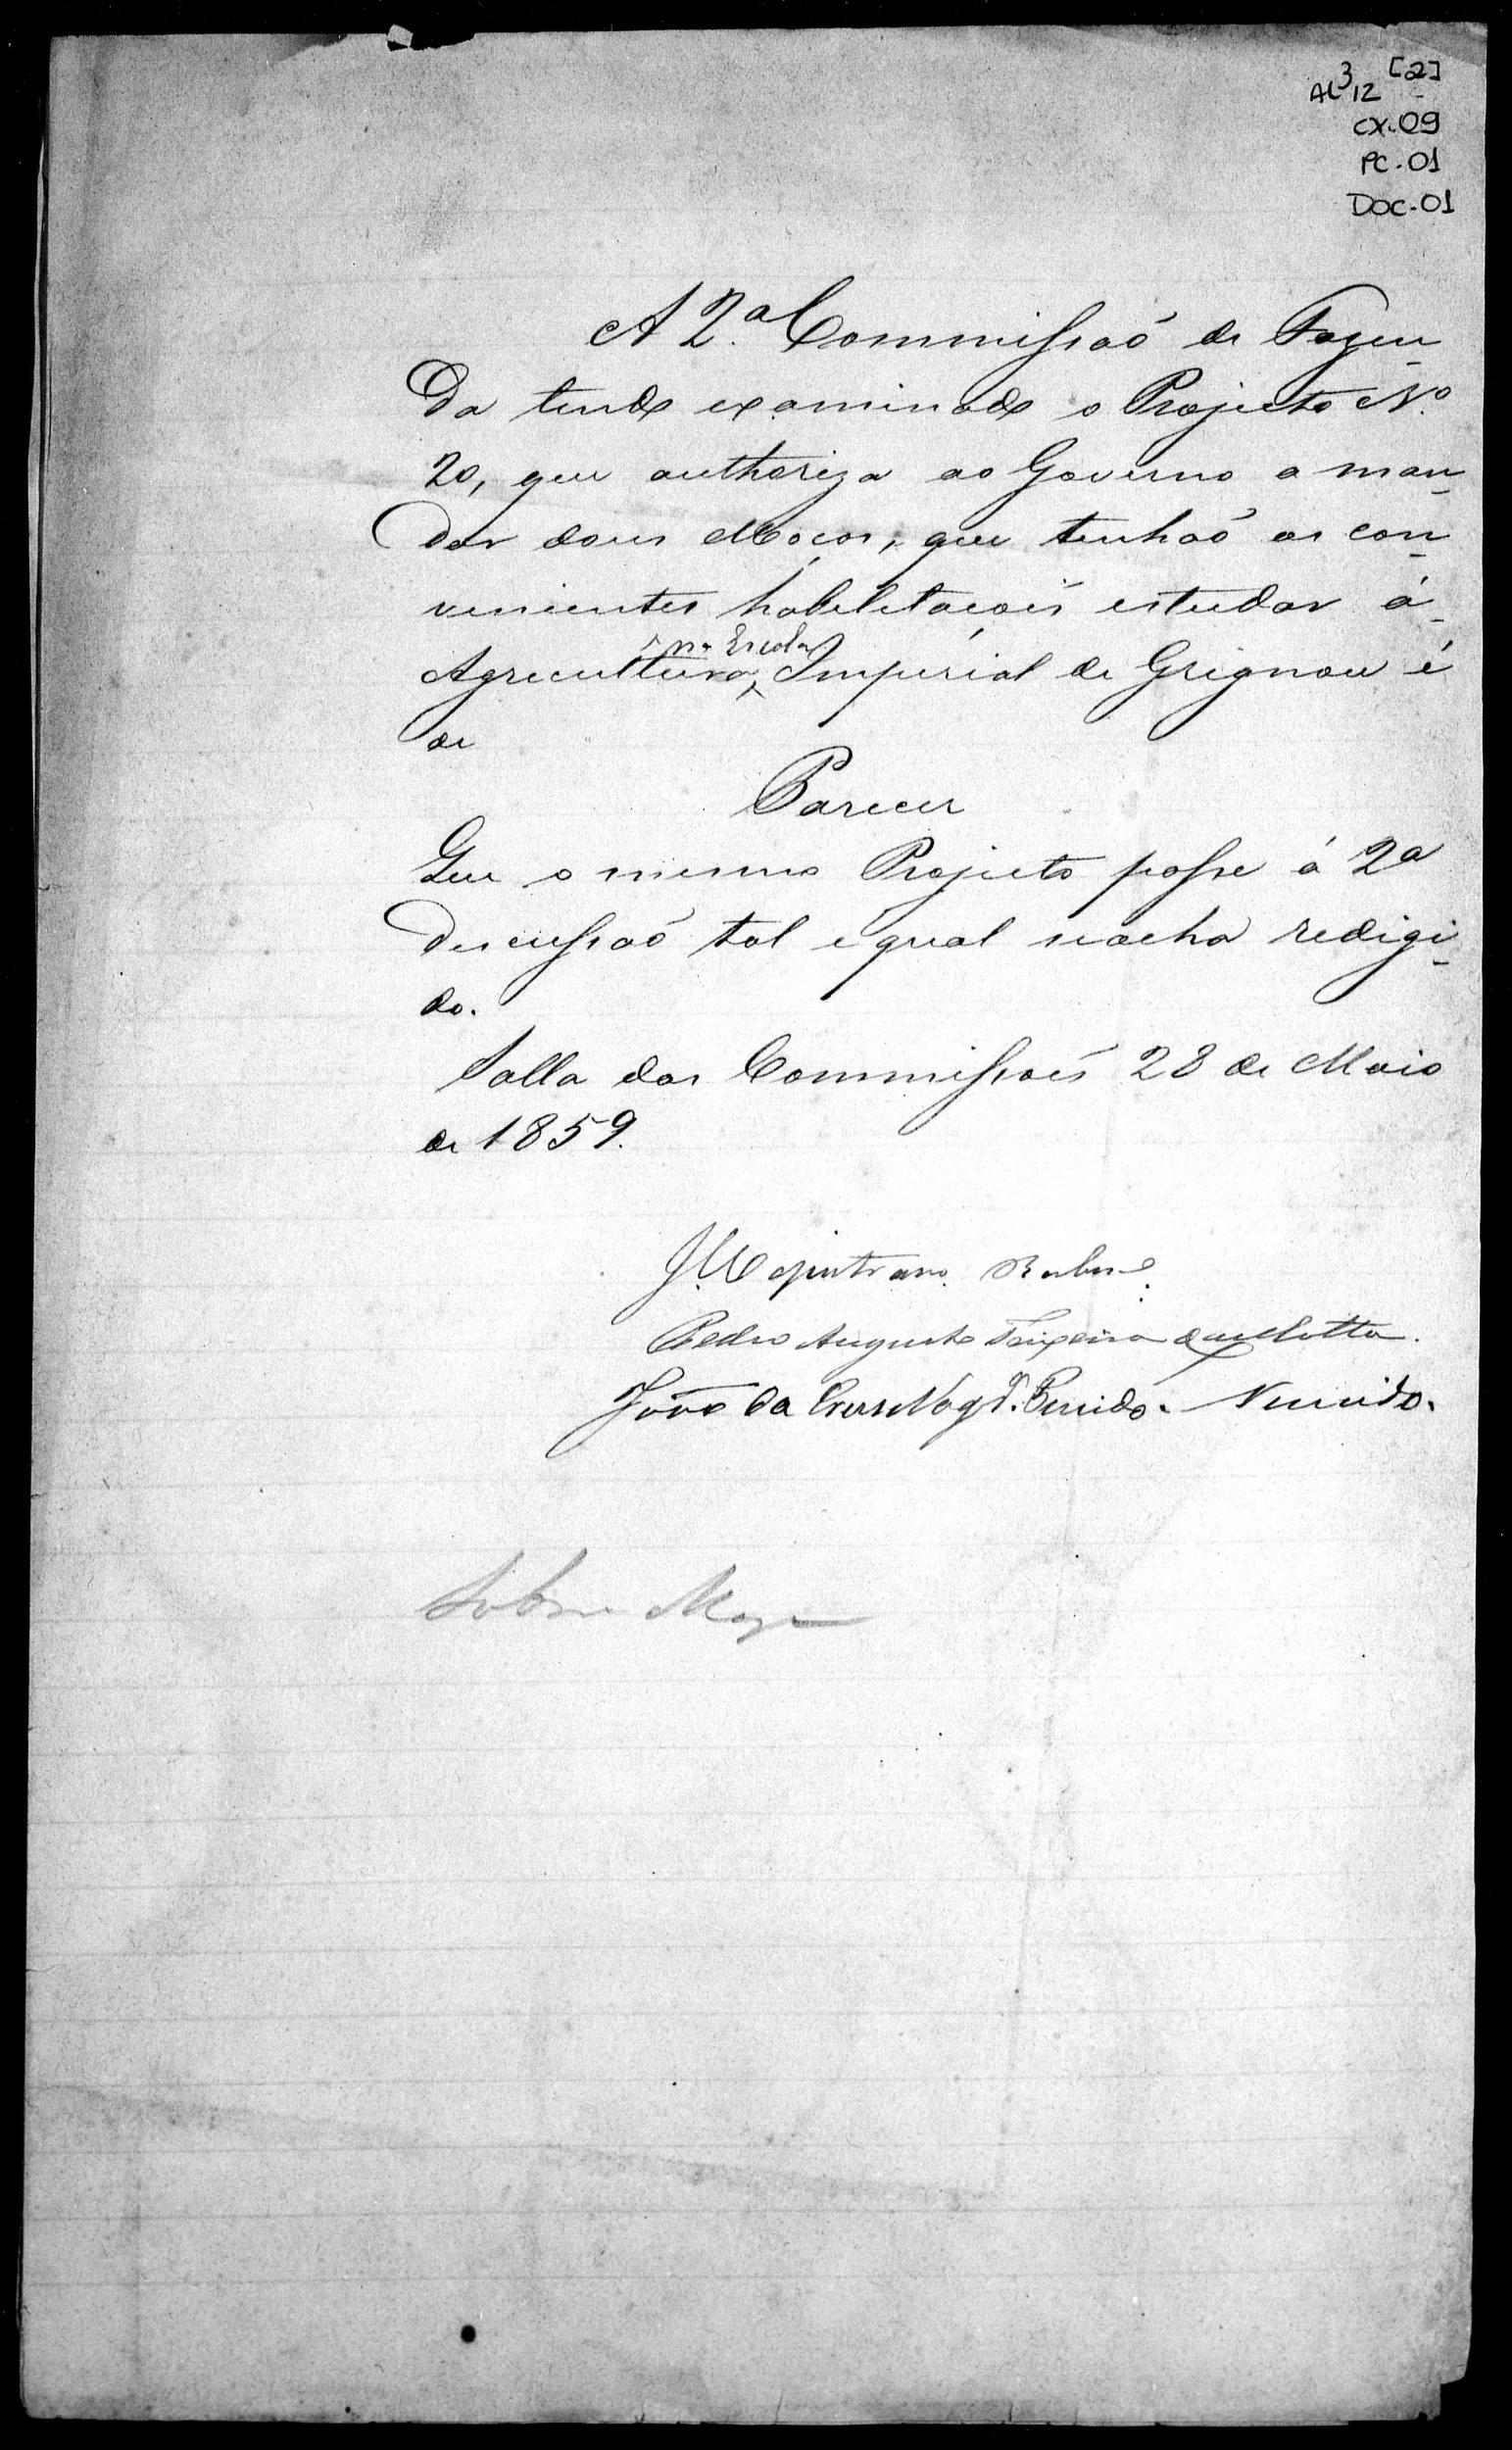 AL 3,12 [2]
CX.09
PC.01
DOC.01
A 2.ª Commissaõ de Fazen
da tendo examinado o Projecto N.º
20, que authoriza ao Governo a man
dar dous Moços, que tenhaõ as con
venientes habilitaçoẽs estudar á
Agricultura, na Escola Imperial de Grignou é
de
Parecer
Que o mesmo Projecto passe á 2ª
discussaõ tal e qual seacha redigi
do.
Salla das Commissoẽs 28 de Maio
de 1859.
Pedro Augusto Teixeira da Motta.
João da Penido. Vencido.
Sobre Mesa